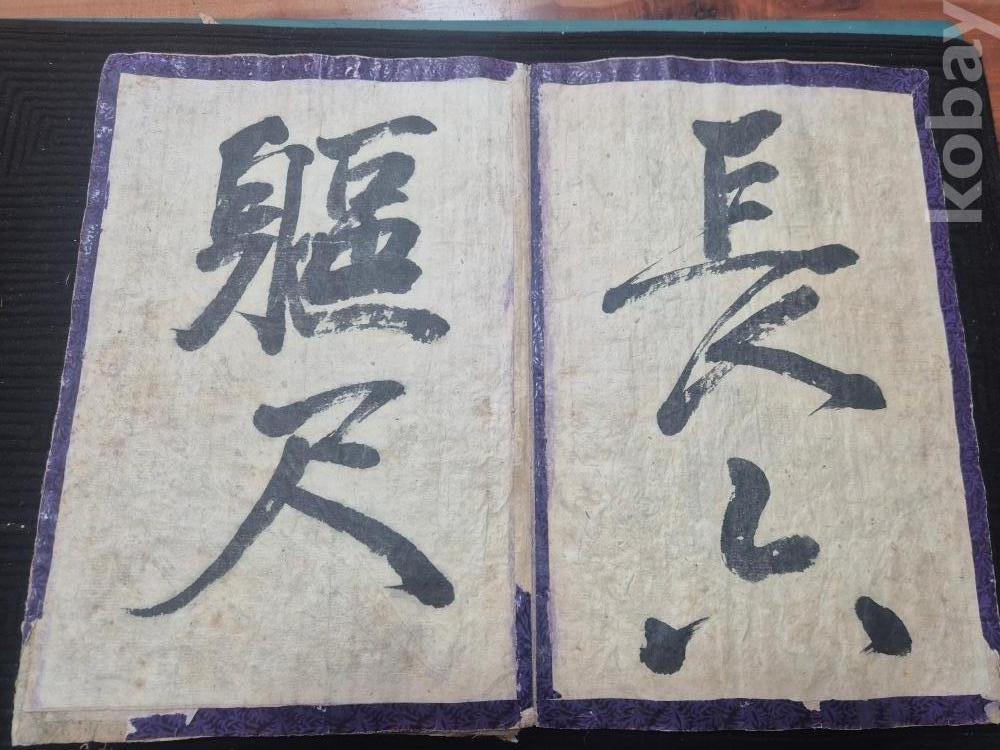 長六
軀尺
kobay